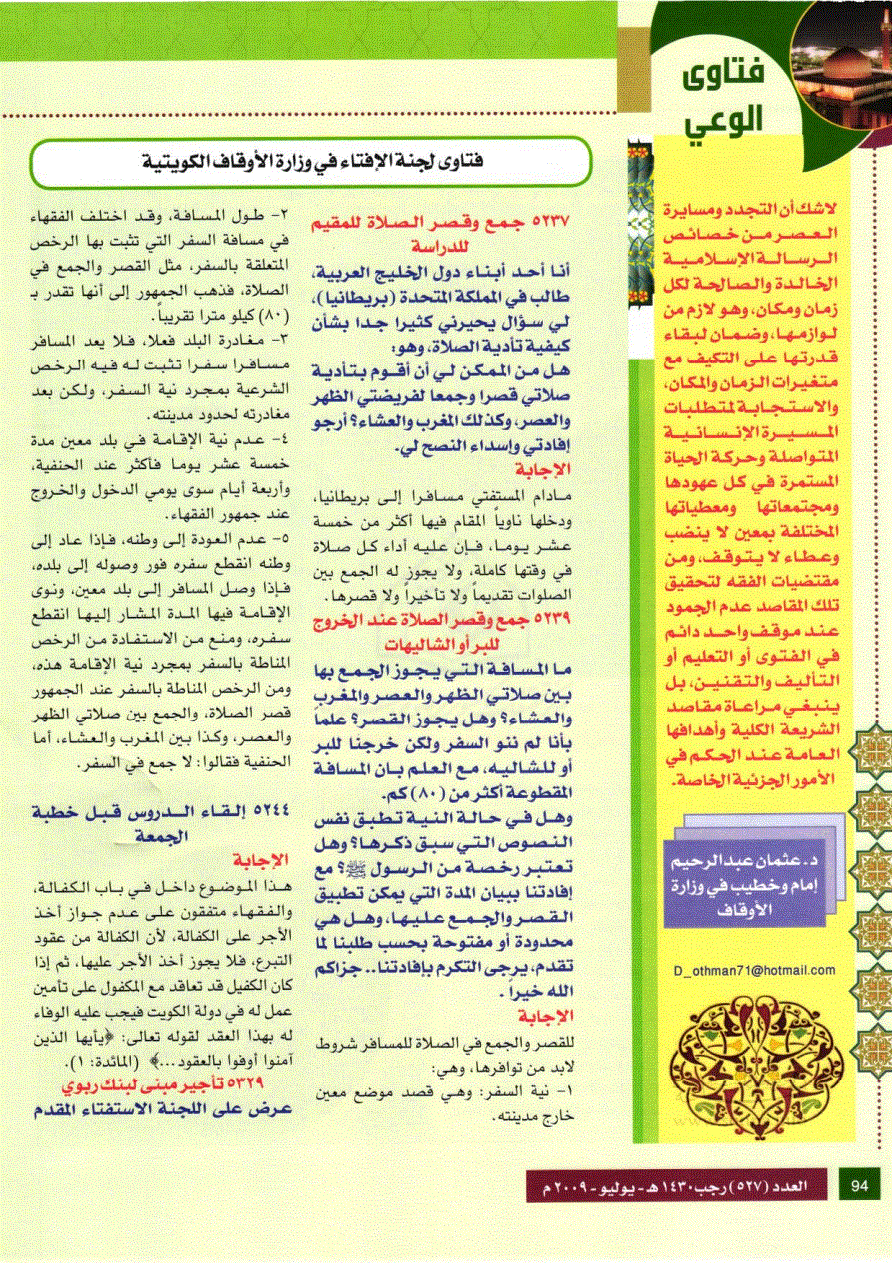 فتاوى
الوعي
فتاوى لجنة الإفتاء في وزارة الأوقاف الكويتية
لاشك أن التجدد ومسايرة
العصر من خصائص
الرسالة الإسلامية
الخالدة والصالحة لكل
زمان ومكان، وهو لازم من
لوازمها، وضمان لبقاء
قدرتها على التكيف مع
متغيرات الزمان والمكان،
والاستجابة لمتطلبات
المسيرة الإنسانية
المتواصلة وحركة الحياة
المستمرة في كل عهودها
ومجتمعاتها ومعطياتها
المختلفة بمعين لا ينضب
وعطاء لا يتوقف، ومن
مقتضيات الفقه لتحقيق
تلك المقاصد عدم الجمود
عند موقف واحد دائم
في الفتوى أو التعليم أو
التأليف والتقنين، بل
ينبغي مراعاة مقاصد
الشريعة الكلية وأهدافها
العامة عند الحكم في
الأمور الجزئية الخاصة.
د. عثمان عبدالرحيم
إمام وخطيب في وزارة
الأوقاف
D_othman71@hotmail.com
٥٢٣٧ جمع وقصر الصلاة للمقيم
للدراسة
أنا أحد أبناء دول الخليج العربية،
طالب في المملكة المتحدة (بريطانيا)،
لي سؤال يحيرني كثيرا جدا بشأن
كيفية تأدية الصلاة، وهو:
هل من الممكن لي أن أقوم بتأدية
صلاتي قصرا وجمعا لفريضتي الظهر
والعصر، وكذلك المغرب والعشاء؟ أرجو
إفادتي وإسداء النصح لي.
الإجابة
مادام المستفتي مسافرا إلى بريطانيا،
ودخلها ناوياً المقام فيها أكثر من خمسة
عشر يوما، فإن عليه أداء كل صلاة
في وقتها كاملة، ولا يجوز له الجمع بين
الصلوات تقديماً ولا تأخيراً ولا قصرها.
٥٢٣٩ جمع وقصر الصلاة عند الخروج
للبر أو الشاليهات
ما المسافة التي يجوز الجمع بها
بين صلاتي الظهر والعصر والمغرب
والعشاء؟ وهل يجوز القصر؟ علماً
بأنا لم ننو السفر ولكن خرجنا للبر
أو للشاليه، مع العلم بان المسافة
المقطوعة أكثر من (٨٠) كم.
وهل في حالة النية تطبق نفس
النصوص التي سبق ذكرها؟ وهل
تعتبر رخصة من الرسول ﷺ؟ مع
إفادتنا ببيان المدة التي يمكن تطبيق
القصر والجمع عليها، وهل هي
محدودة أو مفتوحة بحسب طلبنا لما
تقدم، يرجى التكرم بإفادتنا.. جزاكم
الله خيراً.
الإجابة
للقصر والجمع في الصلاة للمسافر شروط
لابد من توافرها، وهي:
١- نية السفر: وهي قصد موضع معين
خارج مدينته.
٢- طول المسافة، وقد اختلف الفقهاء
في مسافة السفر التي تثبت بها الرخص
المتعلقة بالسفر، مثل القصر والجمع في
الصلاة، فذهب الجمهور إلى أنها تقدر بـ
(٨٠) كيلو مترا تقريباً.
٣- مغادرة البلد فعلا، فلا يعد المسافر
مسافرا سفرا تثبت له فيه الرخص
الشرعية بمجرد نية السفر، ولكن بعد
مغادرته لحدود مدينته.
٤- عدم نية الإقامة في بلد معين مدة
خمسة عشر يوما فأكثر عند الحنفية،
وأربعة أيام سوى يومي الدخول والخروج
عند جمهور الفقهاء.
٥- عدم العودة إلى وطنه، فإذا عاد إلى
وطنه انقطع سفره فور وصوله إلى بلده،
فإذا وصل المسافر إلى بلد معين، ونوى
الإقامة فيها المدة المشار إليها انقطع
سفره، ومنع من الاستفادة من الرخص
المناطة بالسفر بمجرد نية الإقامة هذه،
ومن الرخص المناطة بالسفر عند الجمهور
قصر الصلاة، والجمع بين صلاتي الظهر
والعصر، وكذا بين المغرب والعشاء، أما
الحنفية فقالوا: لا جمع في السفر.
٥٢٤٤ إلقاء الدروس قبل خطبة
الجمعة
الإجابة
هذا الموضوع داخل في باب الكفالة،
والفقهاء متفقون على عدم جواز أخذ
الأجر على الكفالة، لأن الكفالة من عقود
التبرع، فلا يجوز أخذ الأجر عليها، ثم إذا
كان الكفيل قد تعاقد مع المكفول على تأمين
عمل له في دولة الكويت فيجب عليه الوفاء
له بهذا العقد لقوله تعالى: ﴿يأيها الذين
آمنوا أوفوا بالعقود...﴾ (المائدة: ١).
٥٣٢٩ تأجير مبنى لبنك ربوي
عرض على اللجنة الاستفتاء المقدم
94
العدد (٥٢٧) رجب ١٤٣٠ هـ - يوليو - ٢٠٠٩ م